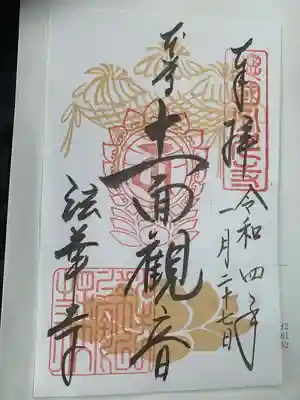 奉拝
令和四年
一月二十七日
本尊
十一面観音
法華寺